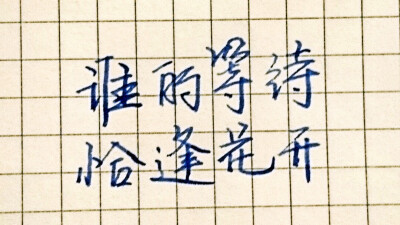 谁的等待
恰逢花开